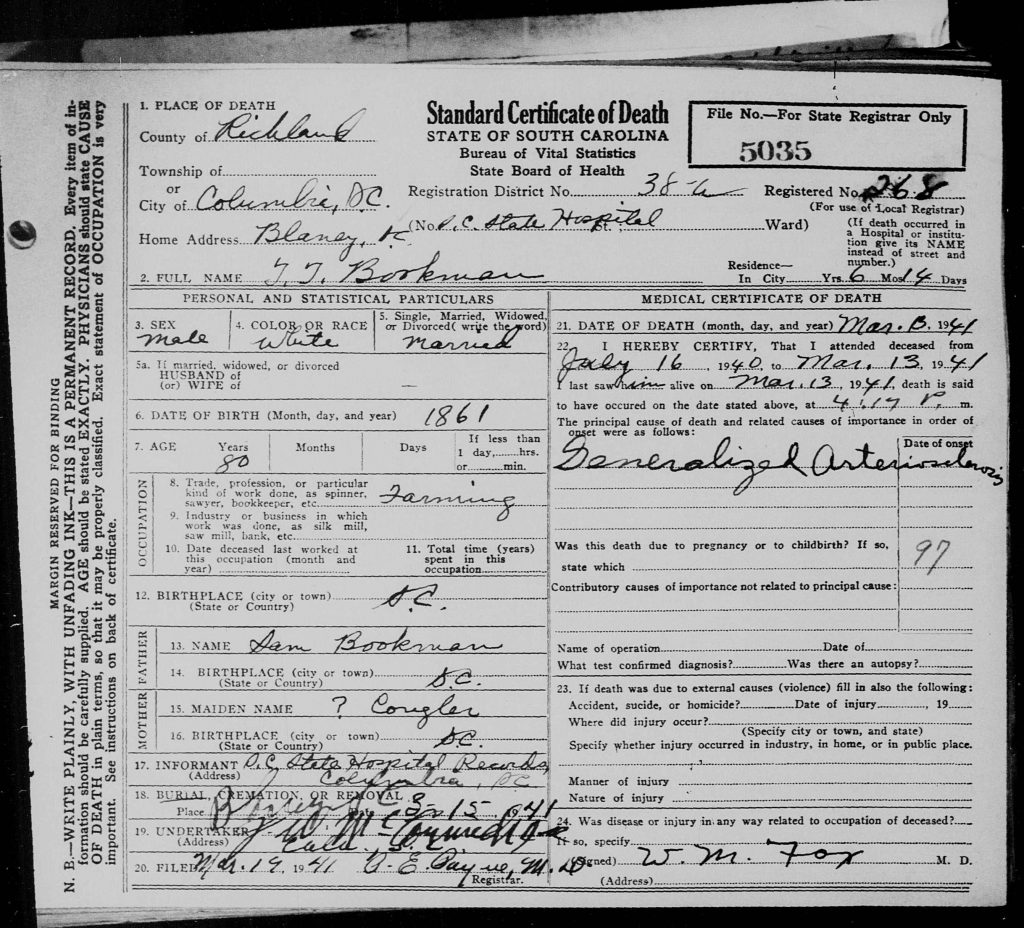 MARGIN RESERVED FOR BINDING
N. B.—WRITE PLAINLY, WITH UNFADING INK—THIS IS A PERMANENT RECORD. Every item of in-
formation should be carefully supplied. AGE should be stated EXACTLY. PHYSICIANS should state CAUSE
OF DEATH in plain terms, so that it may be properly classified. Exact statement of OCCUPATION is very
important. See instructions on back of certificate.
Standard Certificate of Death
STATE OF SOUTH CAROLINA
Bureau of Vital Statistics
State Board of Health
File No.—For State Registrar Only
5035
1. PLACE OF DEATH
County of Richland
Township of
or
City of Columbia, S.C.
Home Address Blaney, SC
Registration District No. 38-a
Registered No. 268
(For use of Local Registrar)
(No. S.C. State Hospital St.; Ward)
(If death occurred in
a Hospital or institu-
tion give its NAME
instead of street and
number.)
2. FULL NAME T. T. Bookman
Residence—
In City Yrs. 6 Mos. 14 Days
PERSONAL AND STATISTICAL PARTICULARS
3. SEX
Male
4. COLOR OR RACE
White
5. Single, Married, Widowed,
or Divorced (write the word)
Married
5a. If married, widowed, or divorced
HUSBAND of
(or) WIFE of —
6. DATE OF BIRTH (Month, day, and year) 1861
7. AGE Years Months Days
80
If less than
1 day, hrs.
or min.
OCCUPATION
8. Trade, profession, or particular
kind of work done, as spinner,
sawyer, bookkeeper, etc. Farming
9. Industry or business in which
work was done, as silk mill,
saw mill, bank, etc.
10. Date deceased last worked at
this occupation (month and
year)
11. Total time (years)
spent in this
occupation
12. BIRTHPLACE (city or town)
(State or Country) S.C.
FATHER
13. NAME Sam Bookman
14. BIRTHPLACE (city or town)
(State or Country) S.C.
MOTHER
15. MAIDEN NAME ? Congler
16. BIRTHPLACE (city or town)
(State or Country) S.C.
17. INFORMANT S.C. State Hospital Records,
(Address) Columbia, SC
18. BURIAL, CREMATION, OR REMOVAL
Place Date 3-15 1941
19. UNDERTAKER
(Address)
20. FILED Mar. 19, 1941
Registrar.
MEDICAL CERTIFICATE OF DEATH
21. DATE OF DEATH (month, day, and year) Mar. 13, 1941
22. I HEREBY CERTIFY, That I attended deceased from
July 16, 1940, to Mar. 13, 1941
I last saw him alive on Mar. 13, 1941, death is said
to have occured on the date stated above, at 4:17 P. m.
The principal cause of death and related causes of importance in order of
onset were as follows:
Date of onset
Generalized Arteriosclerosis
Was this death due to pregnancy or to childbirth? If so,
state which
97
Contributory causes of importance not related to principal cause:
Name of operation Date of
What test confirmed diagnosis? Was there an autopsy?
23. If death was due to external causes (violence) fill in also the following:
Accident, sucide, or homicide? Date of injury , 19
Where did injury occur?
(Specify city or town, and state)
Specify whether injury occurred in industry, in home, or in public place.
Manner of injury
Nature of injury
24. Was disease or injury in any way related to occupation of deceased?
If so, specify
(Signed) W. M. Fox M. D.
(Address)